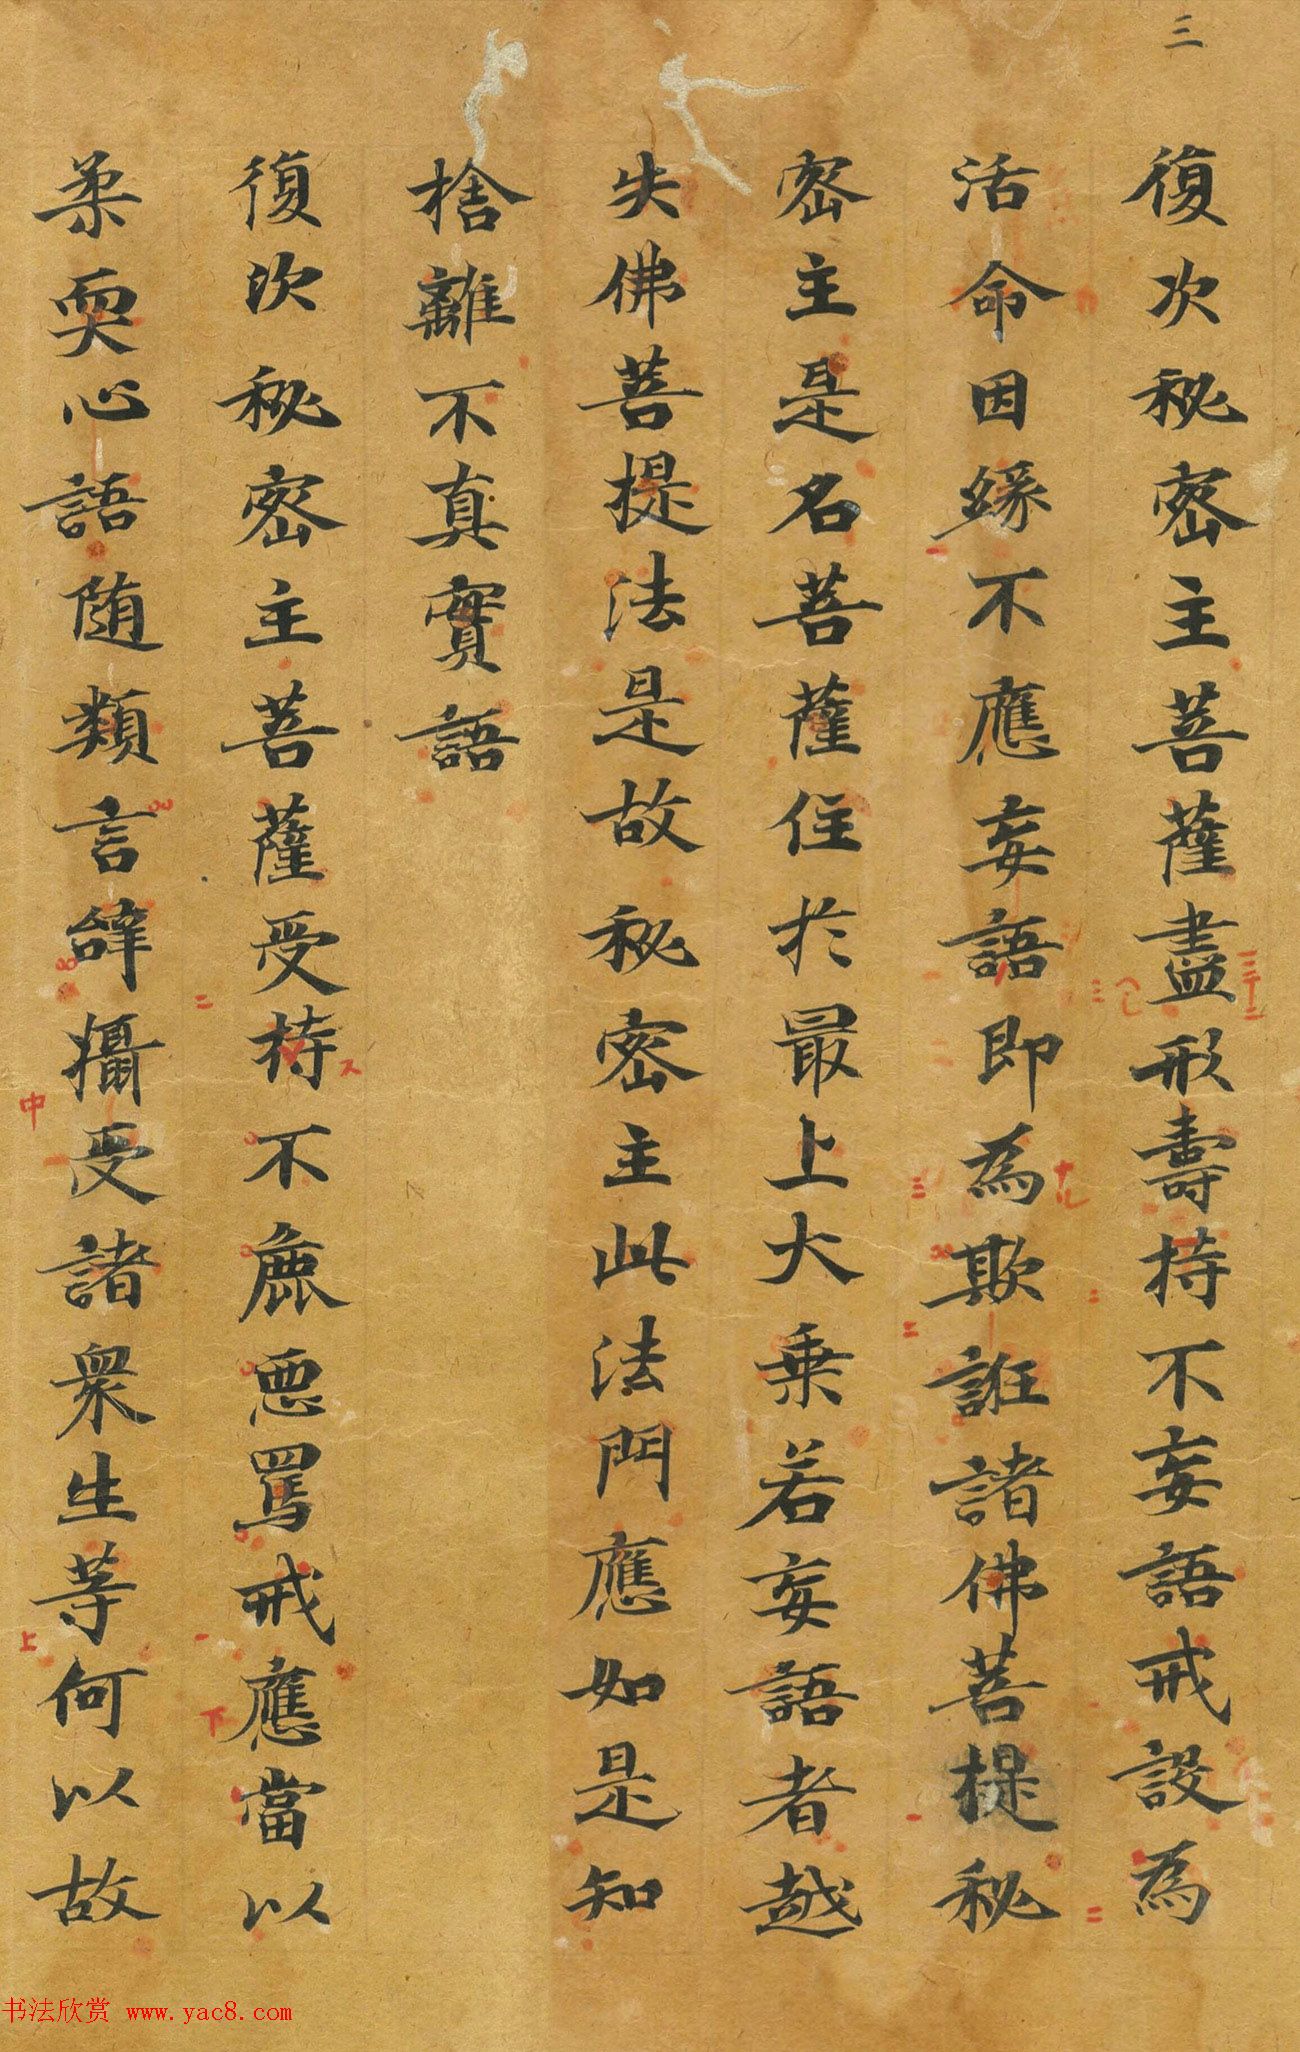 三
復次秘密主菩薩盡形壽持不妄語戒設為
活命因緣不應妄語即為欺誑諸佛菩提秘
密主是名菩薩住於最上大乗若妄語者越
失佛菩提法是故秘密主此法門應如是知
捨離不真實語
復次秘密主菩薩受持不麁惡罵戒應當以
柔耎心語随類言辝攝受諸衆生等何以故
书法欣赏 www.yac8.com